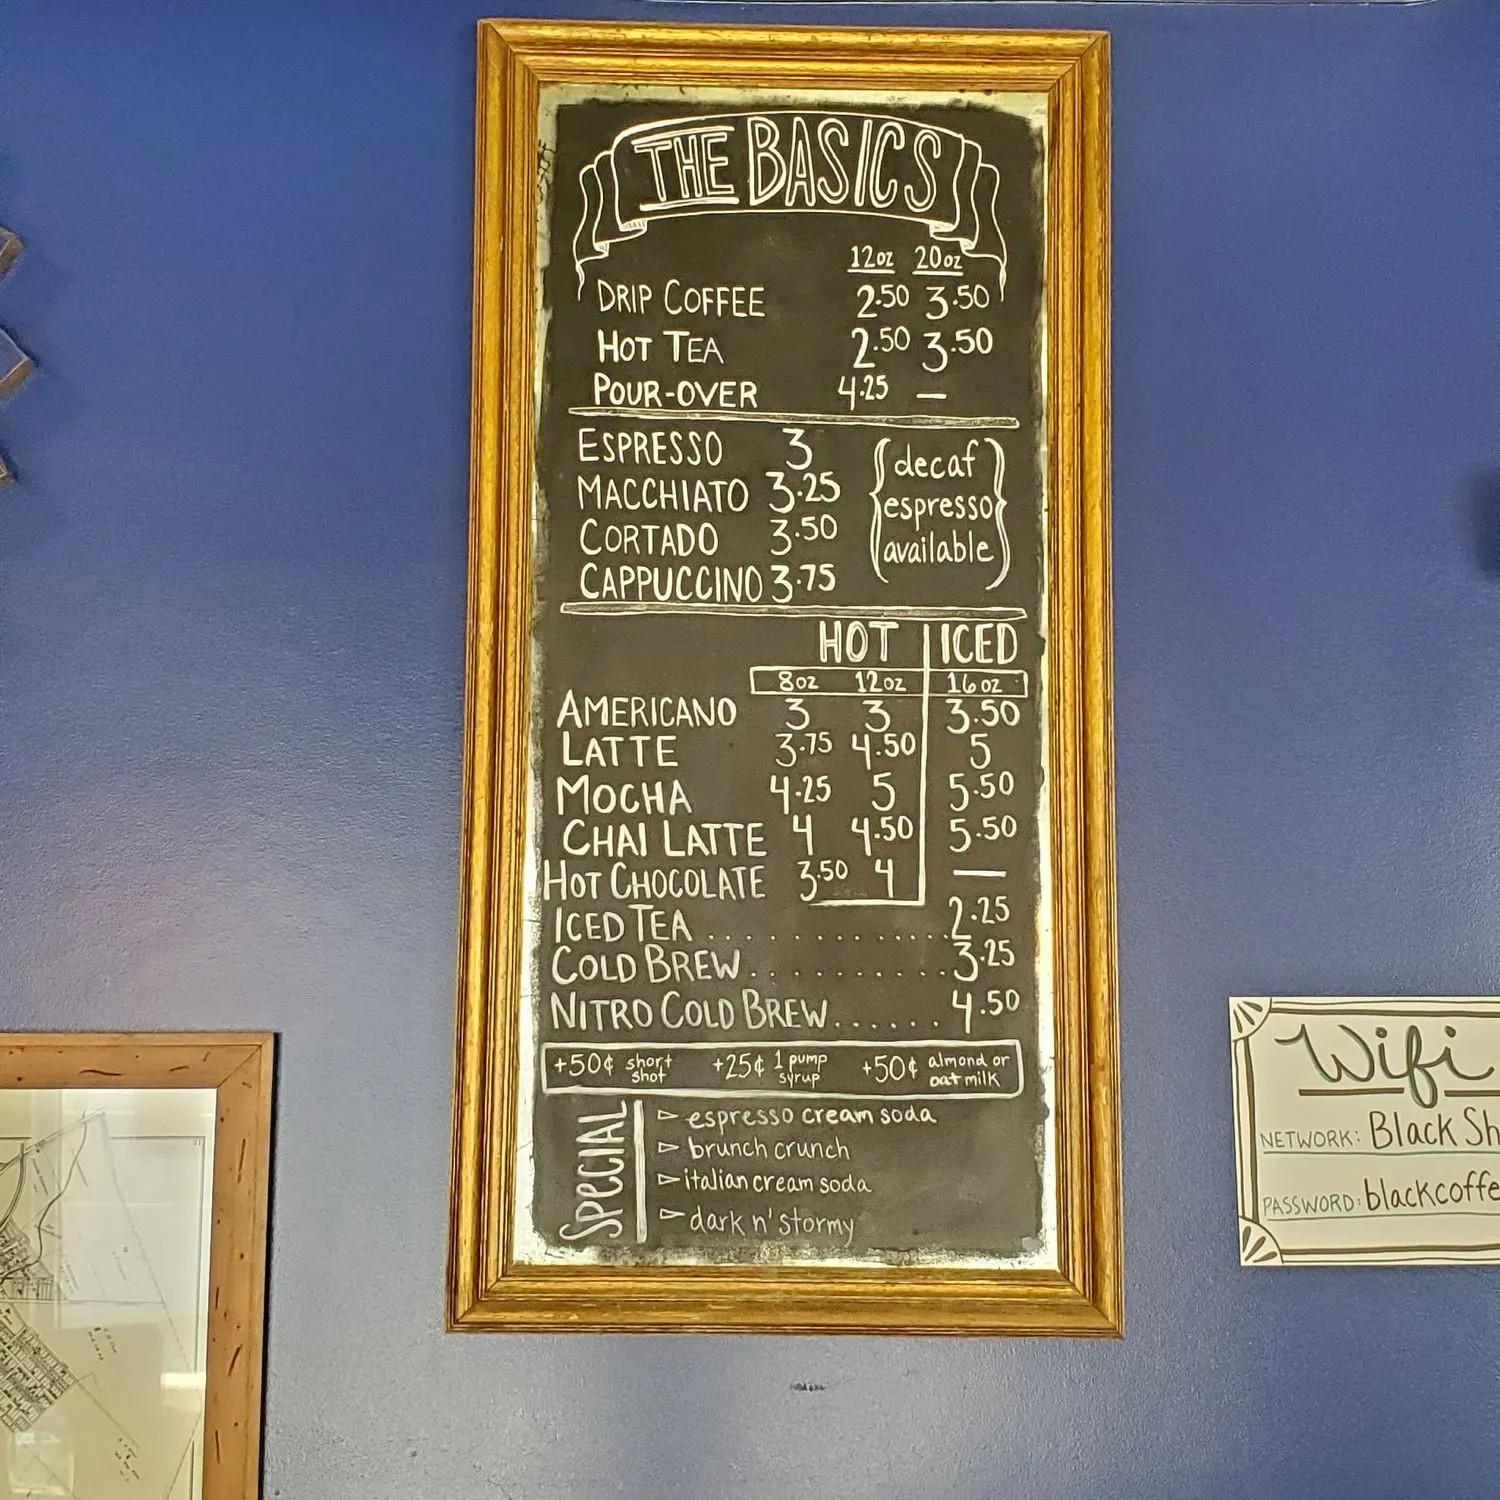 THE BASICS
12oz 20oz
DRIP COFFEE 2.50 3.50
HOT TEA 2.50 3.50
POUR-OVER 4.25 —
ESPRESSO 3
MACCHIATO 3.25
CORTADO 3.50
CAPPUCCINO 3.75
decaf
espresso
available
HOT ICED
8oz 12oz 16oz
AMERICANO 3 3 3.50
LATTE 3.75 4.50 5
MOCHA 4.25 5 5.50
CHAI LATTE 4 4.50 5.50
HOT CHOCOLATE 3.50 4 —
ICED TEA ............. 2.25
COLD BREW .......... 3.25
NITRO COLD BREW ...... 4.50
+50¢ short shot +25¢ 1 pump syrup +50¢ almond or oat milk
SPECIAL
▻ espresso cream soda
▻ brunch crunch
▻ italian cream soda
▻ dark n' stormy
Wifi
NETWORK: Black Sh
PASSWORD: blackcoffe